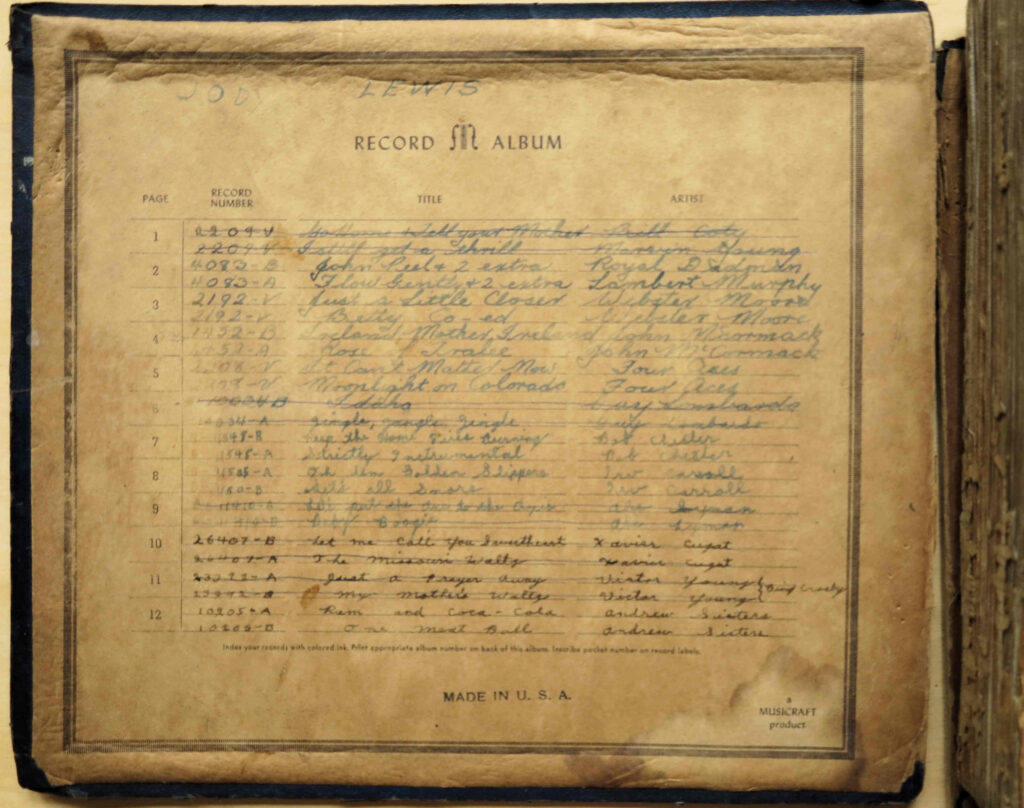 LEWIS
RECORD ALBUM
PAGE RECORD NUMBER TITLE ARTIST
1 2209-V Go Home & Tell your Mother
2209-V I still get a Thrill Young
2 4083-B John Peel & 2 extra Royal Dadmun
4083-A Flow Gently & 2 extra Lambert Murphy
3 2192-V Just a Little Closer Webster Moore
2192-V Betty Co-ed Webster Moore
4 1452-B Ireland, Mother Ireland John McCormack
1452-A Rose of Tralee John McCormack
5 It Can't Matter Now Four Aces
Moonlight on Colorado Four Aces
6 Idaho Guy Lombardo
Jingle, jangle, jingle Guy Lombardo
7 Keep the Home Fires Burning Bob Chester
1548-A Strictly Instrumental Bob Chester
8 Oh Dem Golden Slippers Irv Carroll
Irv Carroll
9 Let's put the Axe to the Axis Abe Lyman
Boogie Abe Lyman
10 26407-B Let me Call You Sweetheart Xavier Cugat
26407-A The Missouri Waltz Xavier Cugat
11 Just a Prayer Away Victor Young
My Mother's Waltz Victor Young
Bing Crosby
12 10205-A Rum and Coca-Cola Andrew Sisters
10205-B One Meat Ball Andrew Sisters
Index your records with colored ink. Print appropriate album number on back of this album. Inscribe pocket number on record labels.
MADE IN U. S. A.
a
MUSICRAFT
product